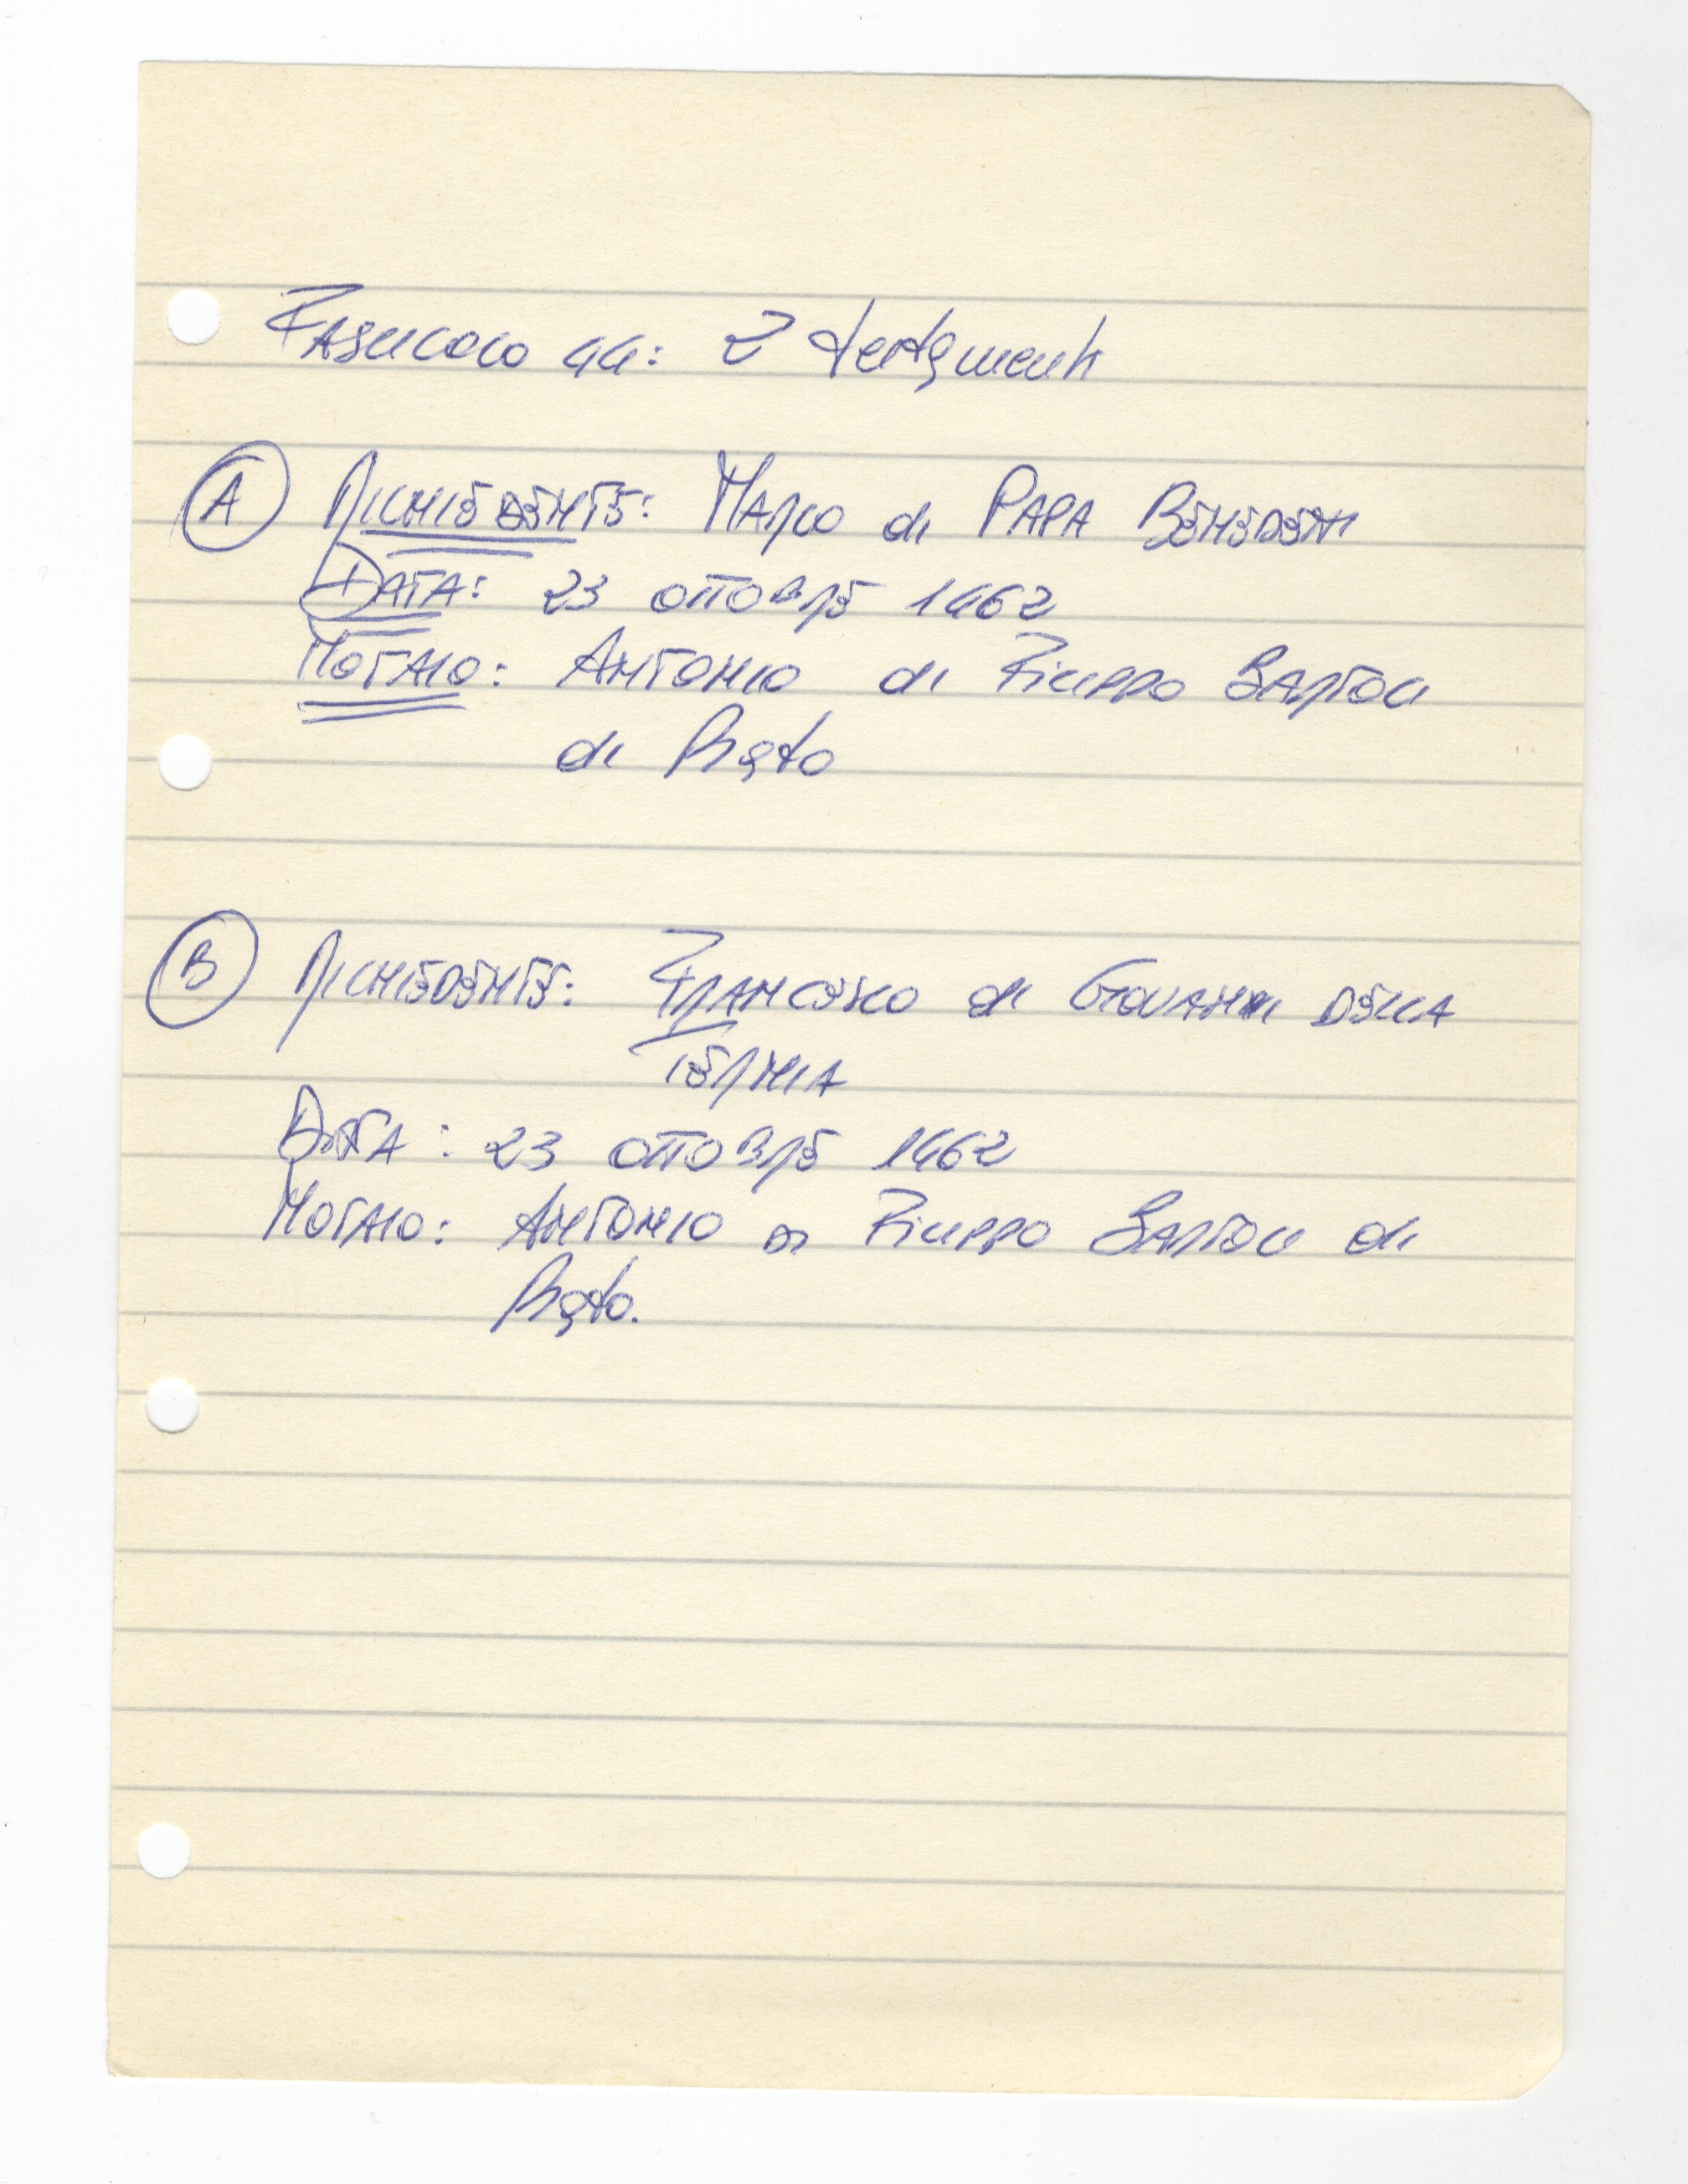 FASCICOLO 44: 2 testamenti
A RICHIEDENTE: MARCO di PAPA
DATA: 23 OTTOBRE 1462
NOTAIO: ANTONIO di FILIPPO BARTOLI
di Prato
B RICHIEDENTE: FRANCESCO di GIOVANNI DELLA
DATA: 23 OTTOBRE 1462
NOTAIO: ANTONIO DI FILIPPO BARTOLI di
Prato.